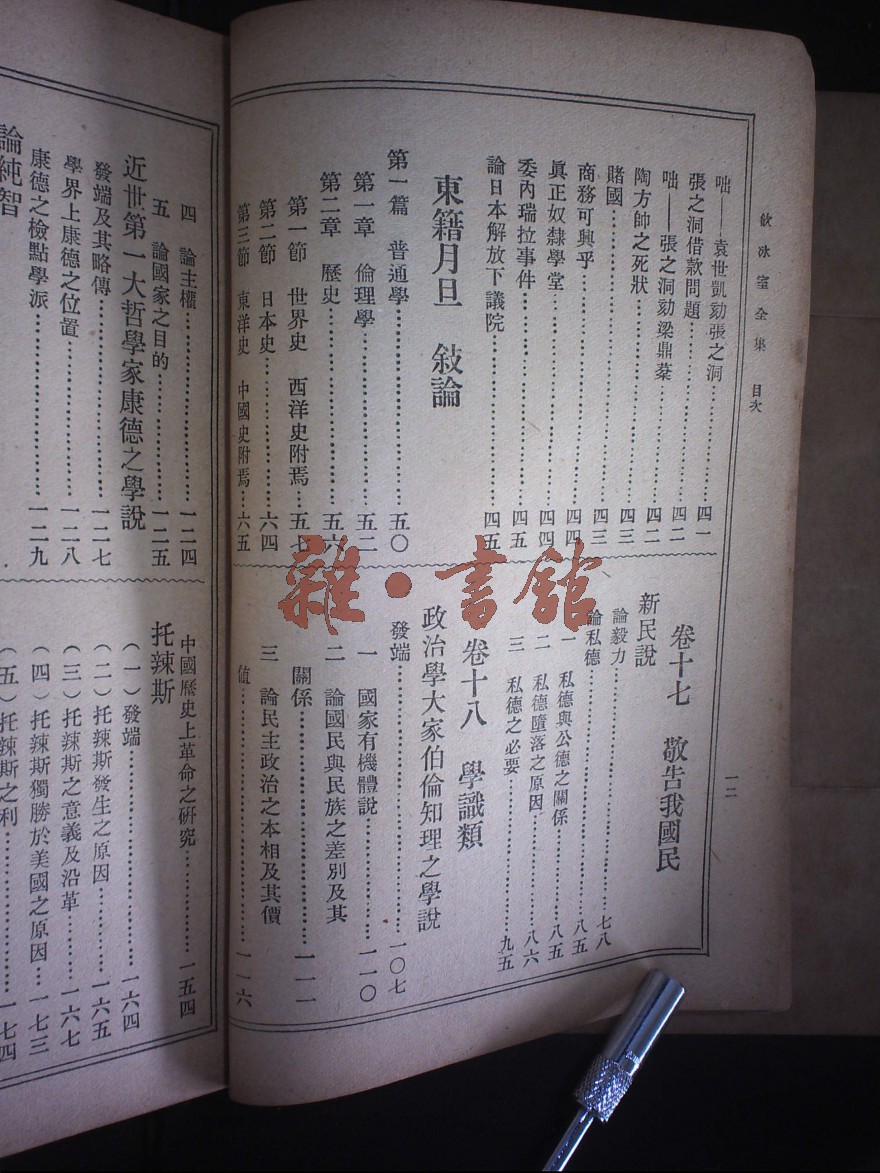 飲冰室全集　目次
一二
咄——袁世凱劾張之洞…………四一
張之洞借款問題…………四二
咄——張之洞劾梁鼎棻…………四二
陶方帥之死狀…………四三
賭國…………四三
商務可興乎…………四四
眞正奴隸學堂…………四四
委內瑞拉事件…………四五
論日本解放下議院…………四五
東籍月旦　敍論
第一篇　普通學…………五〇
第一章　倫理學…………五二
第二章　歷史…………五六
第一節　世界史　西洋史附焉…………五七
第二節　日本史…………六四
第三節　東洋史　中國史附焉…………六五
卷十七　敬告我國民
新民說
論毅力…………七八
論私德…………八五
一　私德與公德之關係…………八五
二　私德墮落之原因…………八六
三　私德之必要…………九五
卷十八　學識類
政治學大家伯倫知理之學說
發端…………一〇七
一　國家有機體說…………一一〇
二　論國民與民族之差別及其
關係…………一一一
三　論民主政治之本相及其價
値…………一一六
四　論主權…………一二四
五　論國家之目的…………一二五
近世第一大哲學家康德之學說
發端及其略傳…………一二七
學界上康德之位置…………一二八
康德之檢點學派…………一二九
論純智
中國歷史上革命之硏究…………一五四
托辣斯
（一）發端…………一六四
（二）托辣斯發生之原因…………一六五
（三）托辣斯之意義及沿革…………一六七
（四）托辣斯獨勝於美國之原因…一七三
（五）托辣斯之利…………一七四
雜·書館